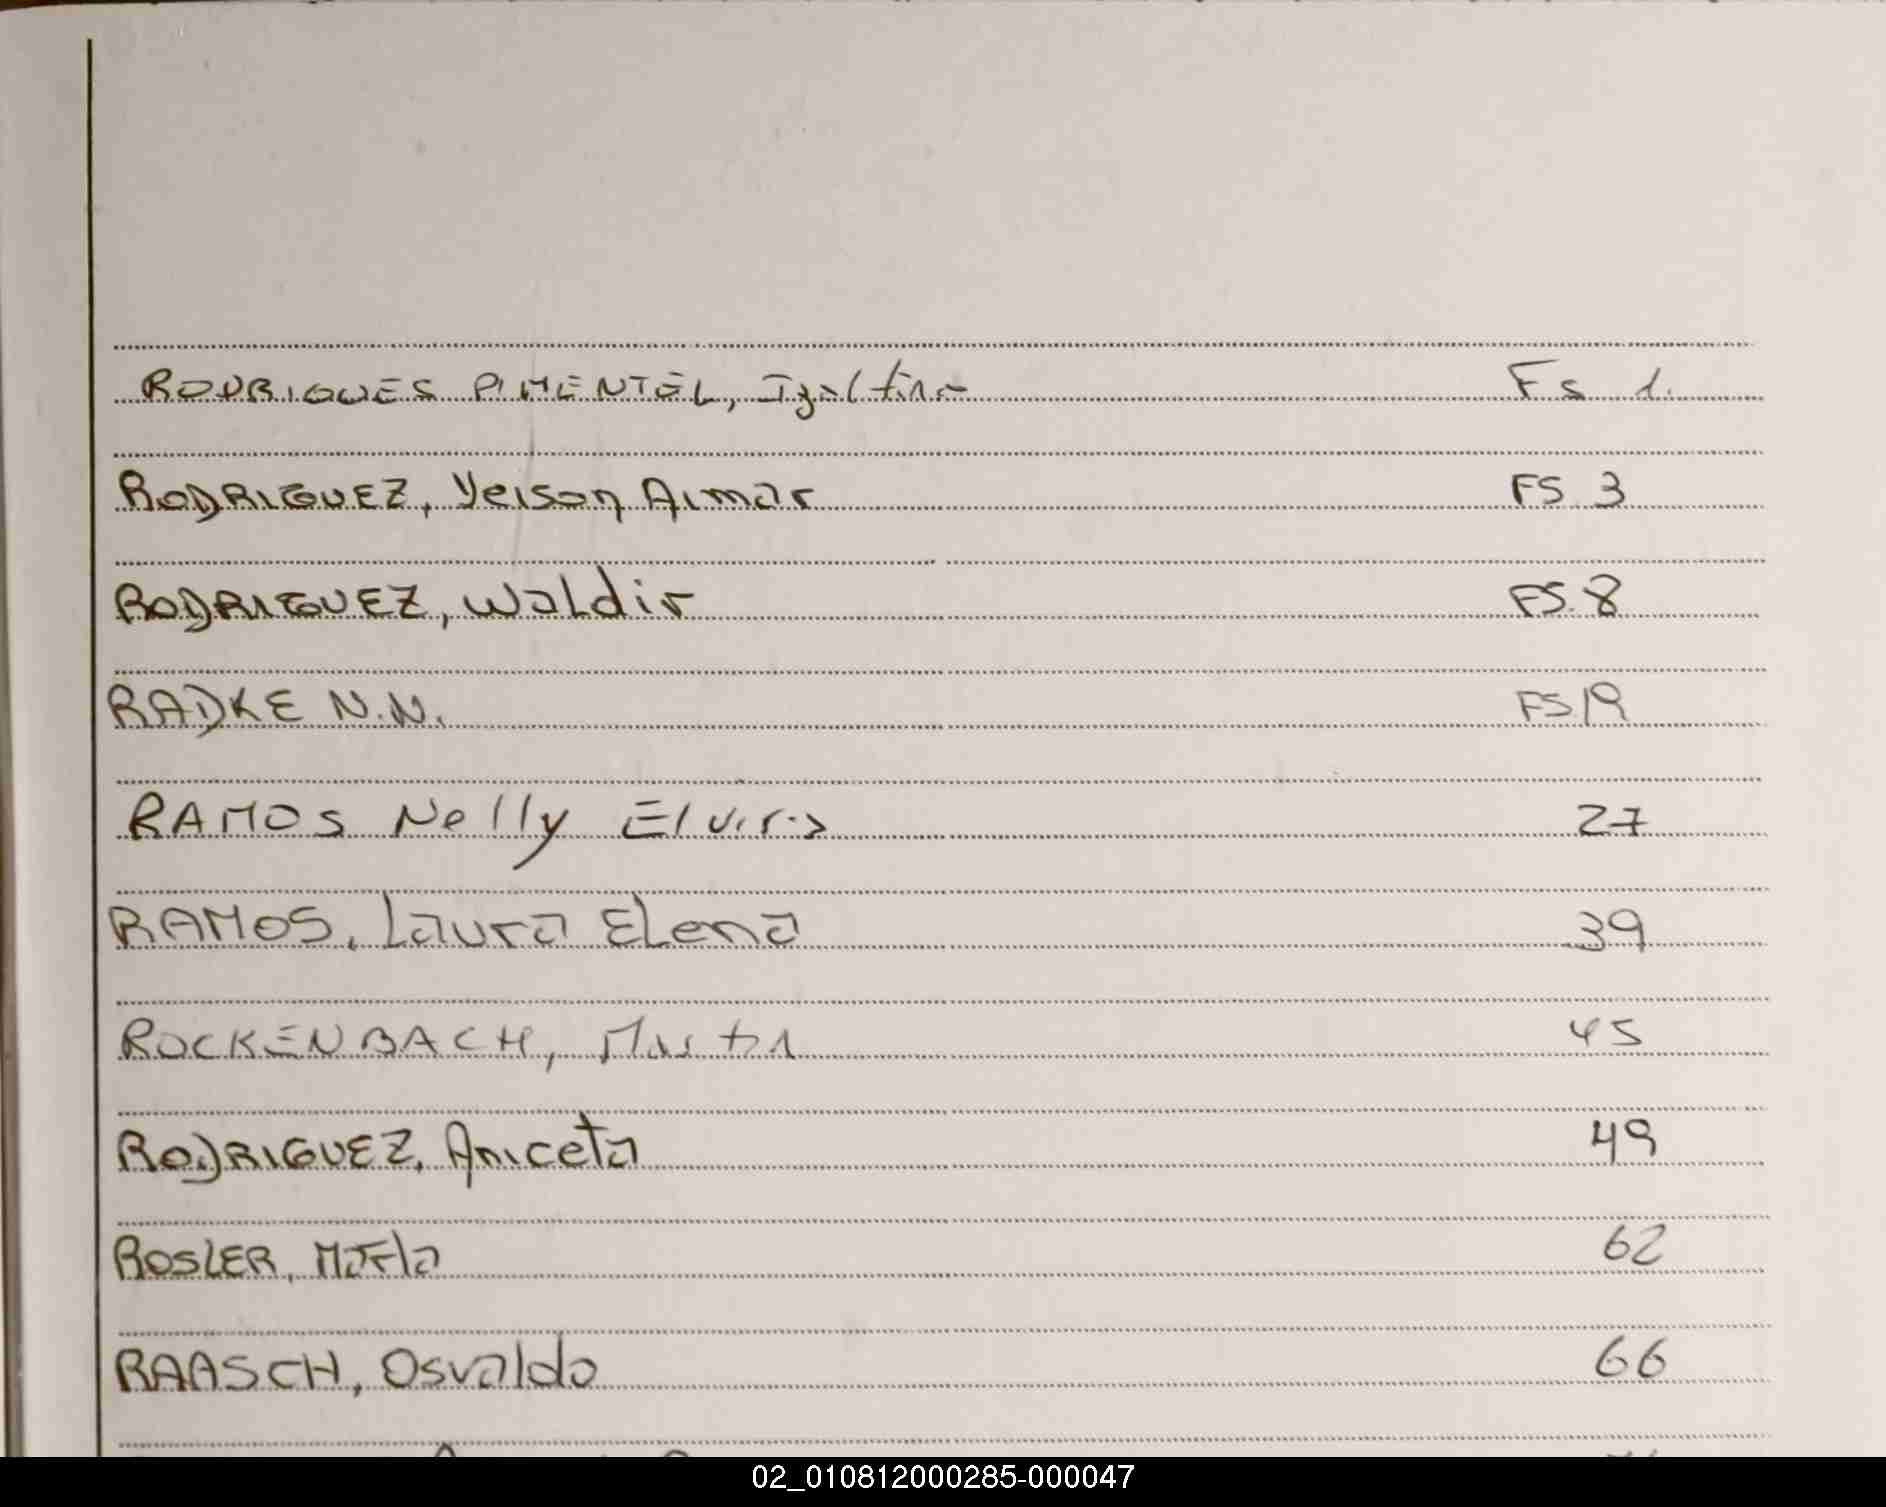 RODRIGUES PIMENTEL, Igaltina Fs 1.
RODRIGUEZ, Yeison Aimar FS. 3
RODRIGUEZ, Waldir FS. 8
RADKE N.N. FS 19
RAMOS Nelly Elvira 27
RAMOS, Laura Elena 39
ROCKENBACH, Martin 45
RODRIGUEZ, Aniceta 49
ROSLER, Marla 62
RAASCH, Osvaldo 66
02_010812000285-000047